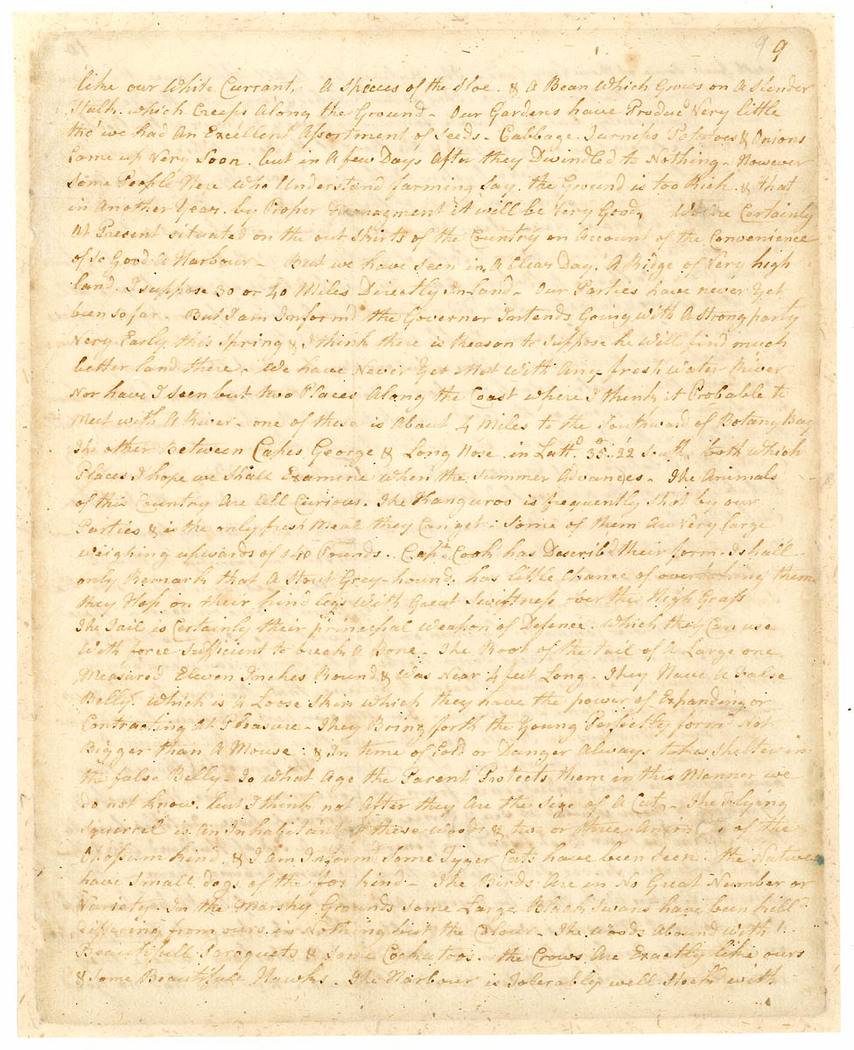 9 9
like our White Currant. A Species of the Sloe. & A Bean Which Grows on A Slender
Stalk. which Creeps Along the Ground - Our Gardens have Produc'd Very little
tho' we had An Excellent Assortment of Seeds - Cabbage. Turneps Potatoes & Onions
Came up Very Soon. but in A few Days After they Dwindled to Nothing - However
Some People Here Who Understand farming Say. the Ground is too Rich. & that
in Another Year. by Proper Managment it will be Very Good. We are Certainly
At Present situated on the out Skirts of the Country on Account of the Convenience
of So Good A Harbour - But we have seen in A Clear Day. A Ridge of Very high
land. I suppose 30 or 40 Miles Directly In land - Our Parties have never Yet
been so far - But I am Inform'd the Governor Intends Going with A Strong party
Very Early this Spring & I think there is Reason to Suppose he will find much
better land there - We have Never Yet Met With Any fresh water River
Nor have I seen but two Places Along the Coast where I think it Probable to
Meet with A River - one of these is About 4 Miles to the Southward of Botany Bay
The other Between Capes George & Long Nose. in Latt.d 35..22 South both which
Places I hope we Shall Examine when the Summer Advances - The Animals
of this Country Are All Curious. The Kanguroo is frequently Shot by our
Parties & is the only fresh Meat they Can get: Some of them Are Very large
weighing upwards of 140 Pounds. Capt. Cook has Describ'd their form. I shall
only Remark that A Stout Grey-hound. has little Chance of overtaking them
they Hop on their hind legs With Great Swiftness over the High Grass
The Tail is Certainly their principal Weapon of Defence. which they Can use
With force Sufficient to break A Bone - The Root of the tail of A Large one
Measured Eleven Inches Round & Was Near 4 feet Long - They Have A False
Belly. Which is A Loose Skin which they have the power of Expanding or
Contracting At Pleasure - They Bring forth the Young Perfectly form'd Not
Bigger than A Mouse: & In time of Cold or Danger Always takes Shelter in
the false Belly - To what Age the Parent Protects them in this Manner we
do not know. but I think not After they Are the Size of A Cat - The Flying
Squirrel is An Inhabitant of these Woods & two or three Animals of the
Opossum kind. & I Am Inform'd Some Tyger Cats have been seen. the Natives
have Small dogs of the fox kind - The Birds Are in No Great Number or
Variety. In the Marshy Grounds Some Large Black Swans have been kill'd
differing from ours in Nothing but the Colour - The Woods Abound wyth
Beautifull Paroquets & Some Cockatoos. the Crows Are Exactly like ours
& Some Beautifull Hawks. The Harbour is Tolerably well Stock'd with